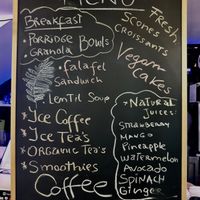 MENU
Breakfast
• PORRIDGE
• GRANOLA BOWLS
FRESH
SCONES
CROISSANTS
VEGAN
CAKES
• Falafel
Sandwich
• Lentil Soup
• Ice Coffee
• Ice Tea's
• Organic Tea's
• Smoothies
Coffee
• NATURAL
JUICES:
STRAWBERRY
MANGO
Pineapple
WATERMELON
AVOCADO
SPINACH
Ginger